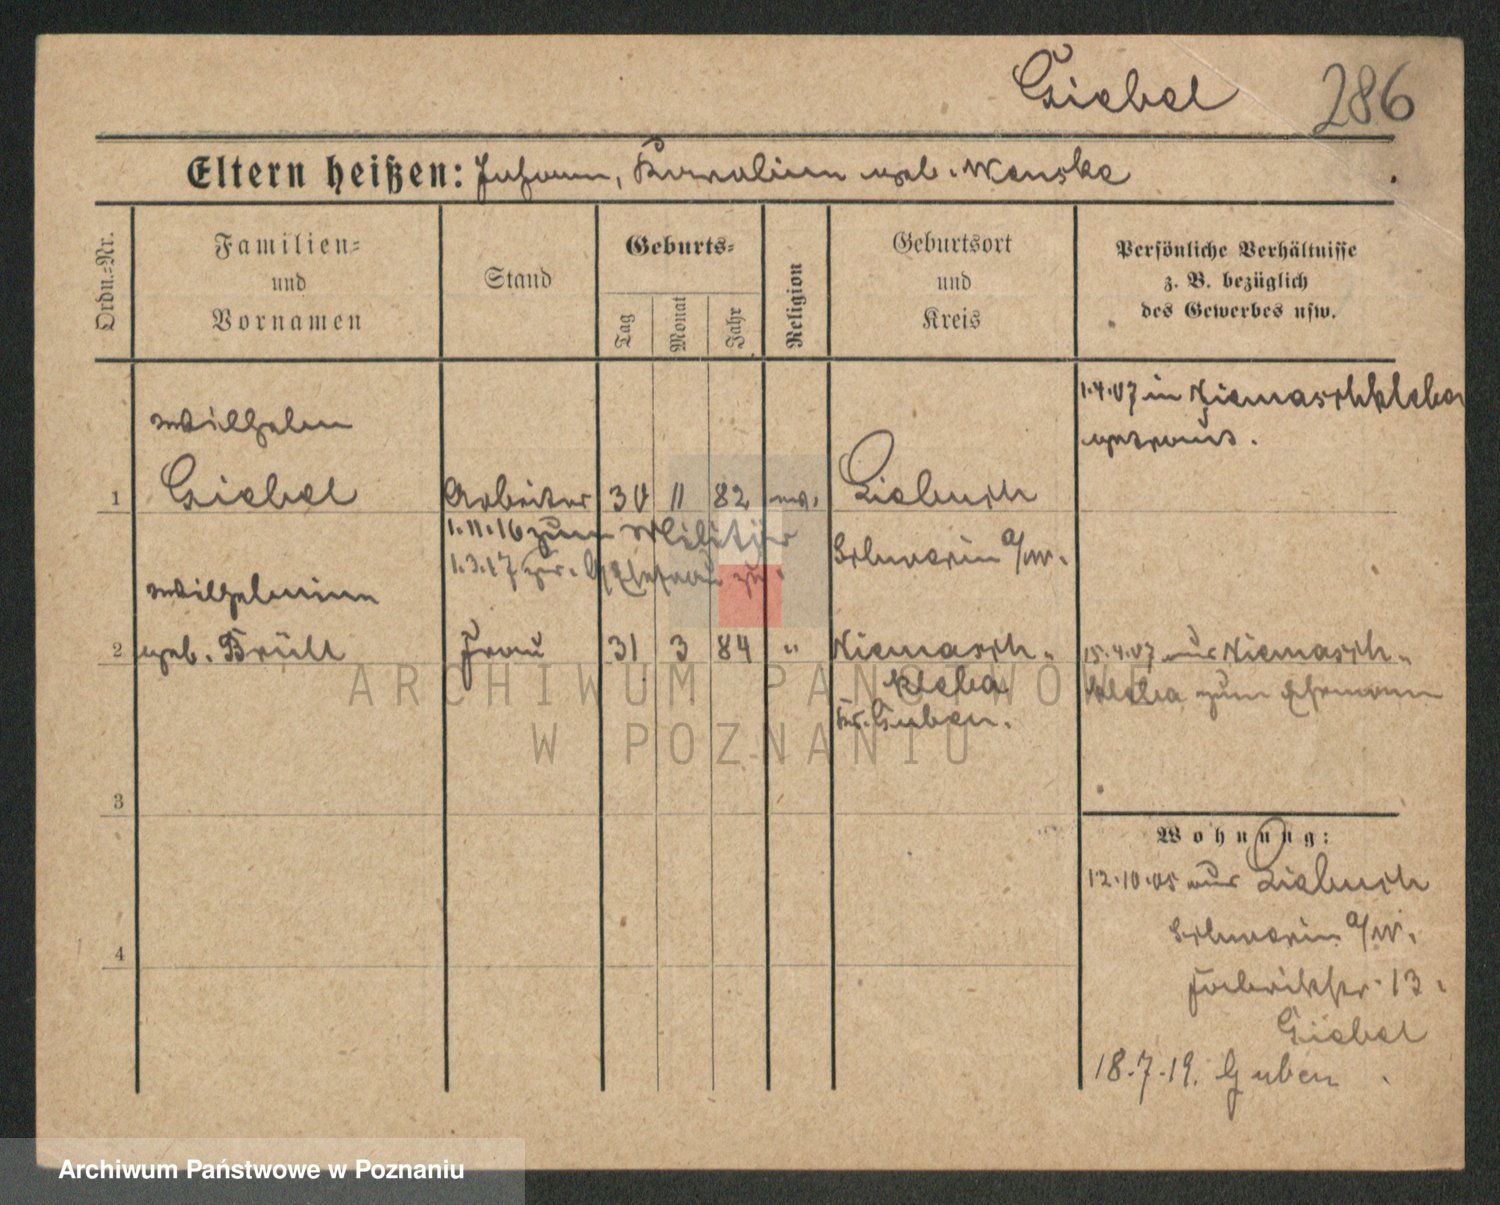 Giebel 286
Eltern heißen: Johann, Karoline geb. Wenske
Ordn.-Nr.
Familien-
und
Vornamen
Stand
Geburts-
Tag
Monat
Jahr
Religion
Geburtsort
und
Kreis
Persönliche Verhältnisse
z. B. bezüglich
des Gewerbes usw.
1.4.07 in Niemaschkleba
getraut.
Wilhelm
1 Giebel Arbeiter 30 11 82 Liebuch
1.11.16 zum Militär
Schwerin a/W.
1.3.17 zur Ehefrau zu.
Wilhelmine
2 geb. Brüll Frau 31 3 84 " Niemasch-
kleba
Kr. Guben.
15.4.07 aus Niemasch-
kleba zum Ehemann
3
4
Wohnung:
12.10.05 aus Liebuch
Schwerin a/W.
Fabrikstr. 13.
Giebel
18.7.19. Guben
ARCHIWUM PAŃSTWOWE
W POZNANIU
Archiwum Państwowe w Poznaniu